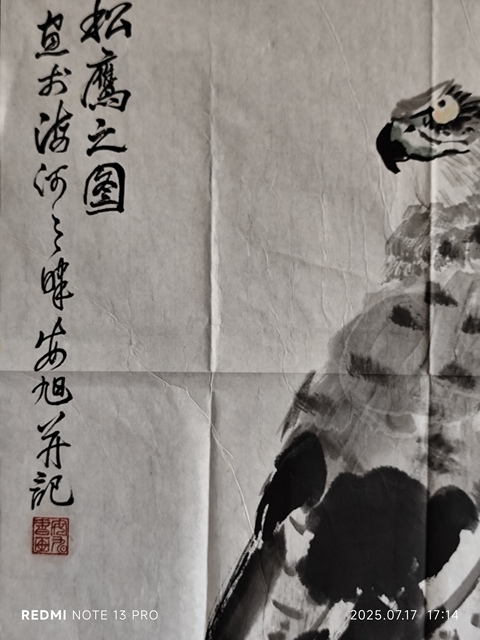 松鹰之图
画于海河之畔安旭并記
REDMI NOTE 13 PRO
2025.07.17 17:14